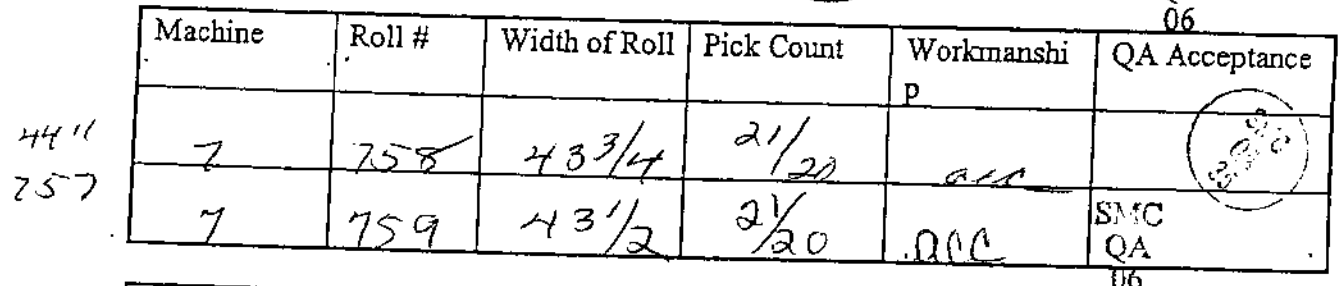 06
Machine Roll # Width of Roll Pick Count Workmanshi QA Acceptance
p
44" 7 758 43 3/4 21/20 acc
757
7 759 43 1/2 21/20 acc SMC
QA
06